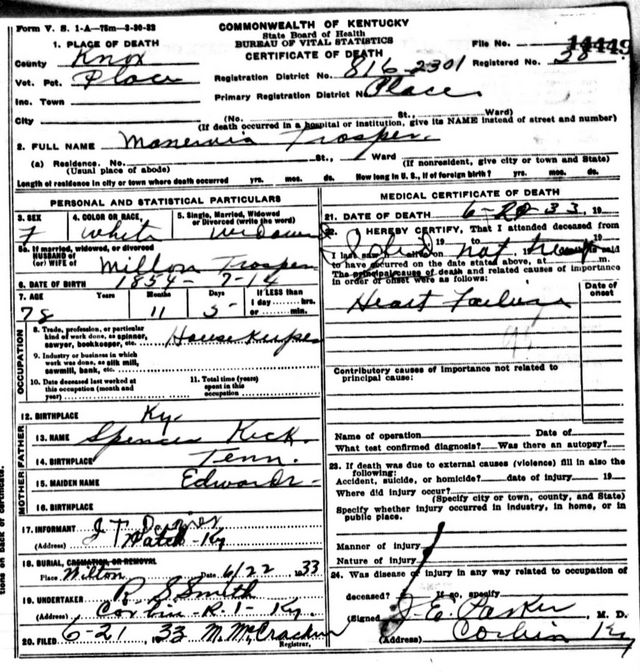 Form V. S. 1-A—75m—3-30-33
COMMONWEALTH OF KENTUCKY
State Board of Health
BUREAU OF VITAL STATISTICS
CERTIFICATE OF DEATH
File No. 14449
1. PLACE OF DEATH
County Knox
Registration District No. 816-2301 Registered No. 28
Vot. Pct. Place
Primary Registration District No. Place
Inc. Town
City (No. St., Ward)
(If death occurred in a hospital or institution, give its NAME instead of street and number)
2. FULL NAME Manervia Trosper
(a) Residence. No. St., Ward (If nonresident, give city or town and State)
(Usual place of abode)
Length of residence in city or town where death occurred yrs. mos. ds. How long in U. S., if of foreign birth? yrs. mos. ds.
PERSONAL AND STATISTICAL PARTICULARS
3. SEX 4. COLOR OR RACE, 5. Single, Married, Widowed or Divorced (write the word)
F White Widow
5a. If married, widowed, or divorced
HUSBAND of
(or) WIFE of Milton Trosper
6. DATE OF BIRTH 1854-7-14
7. AGE Years Months Days If LESS than
1 day hrs.
or min.
78 11 5
OCCUPATION
8. Trade, profession, or particular
kind of work done, as spinner,
sawyer, bookkeeper, etc. Housekeeper
9. Industry or business in which
work was done, as silk mill,
sawmill, bank, etc.
10. Date deceased last worked at
this occupation (month and
year)
11. Total time (years)
spent in this
occupation
12. BIRTHPLACE Ky.
FATHER
13. NAME Spencer Keck
14. BIRTHPLACE Tenn.
MOTHER
15. MAIDEN NAME Edwards
16. BIRTHPLACE
17. INFORMANT J T
(Address) Ky
18. BURIAL, CREMATION, OR REMOVAL
Place Wilton Date 6/22 1933
19. UNDERTAKER R S Smith
(Address) Corbin R. 1- Ky.
20. FILED 6-21, 33 M. McCracken
Registrar.
MEDICAL CERTIFICATE OF DEATH
21. DATE OF DEATH 6-20-33, 19
22. I HEREBY CERTIFY, That I attended deceased from
19 to 19
I last saw alive on
I did not
to have occurred on the date stated above, at m.
The principal cause of death and related causes of importance
in order of onset were as follows:
Date of onset
Heart Failure
Contributory causes of importance not related to
principal cause:
Name of operation Date of
What test confirmed diagnosis? Was there an autopsy?
23. If death was due to external causes (violence) fill in also the
following:
Accident, suicide, or homicide? date of injury 19
Where did injury occur?
(Specify city or town, county, and State)
Specify whether injury occurred in industry, in home, or in
public place.
Manner of injury
Nature of injury
24. Was disease or injury in any way related to occupation of
deceased? If so, specify
(Signed) J. E. Parker, M. D.
(Address) Corbin Ky
tions on back of certificate.